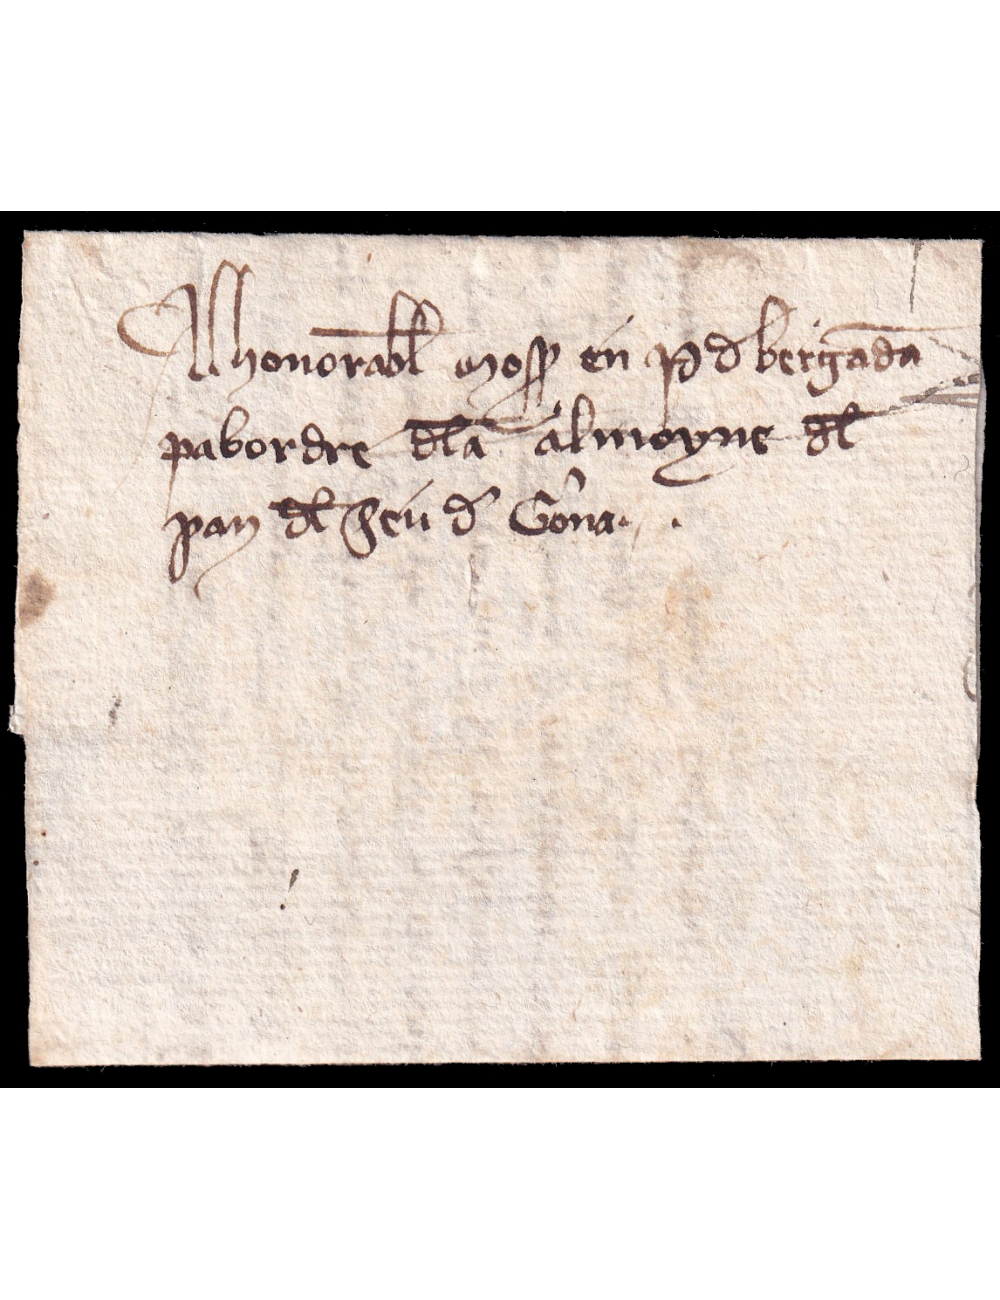 Al honorabl moss en P d bergada
pabordre dla almoyne dl
pan dl Seu d Gona.